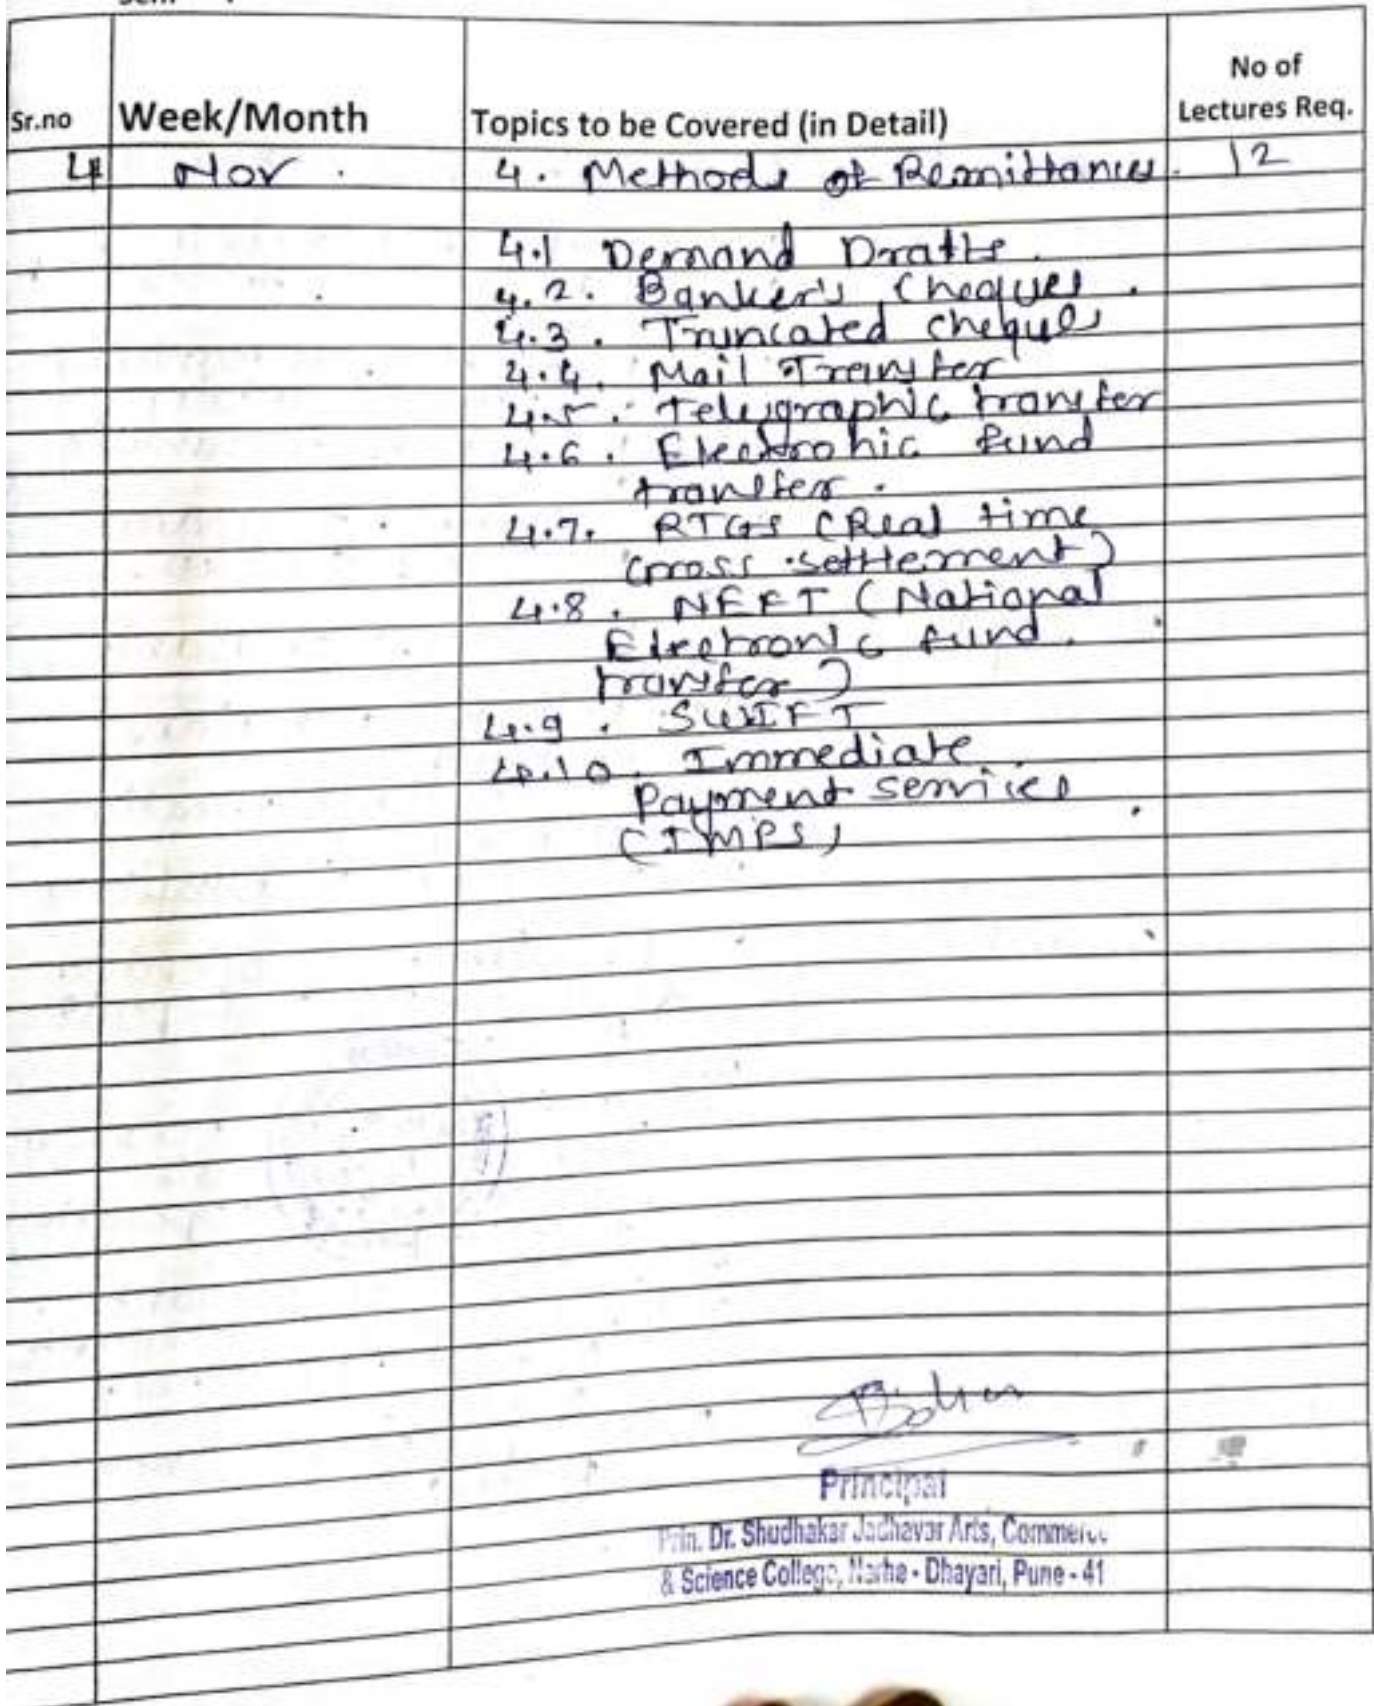 Sr.no Week/Month Topics to be Covered (in Detail) No of Lectures Req.
4 Nov. 4. Methods of Remittances. 12
4.1 Demand Drafts.
4.2. Banker's Cheques.
4.3. Truncated cheques
4.4. Mail Transfer
4.5. Telegraphic transfer
4.6. Electronic fund
transfer.
4.7. RTGS (Real time
Gross settlement)
4.8. NEFT (National
Electronic fund
transfer)
4.9. SWIFT
4.10. Immediate
Payment services
(IMPS)
Principal
Prin. Dr. Shudhakar Jadhavar Arts, Commerce
& Science College, Narhe - Dhayari, Pune - 41